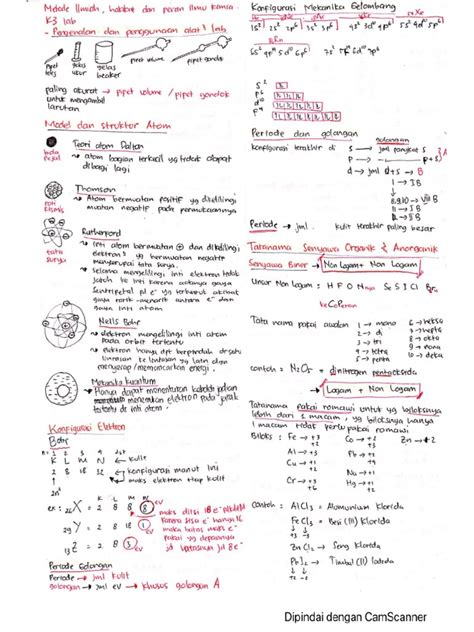 Metode Ilmiah, hakikat dan peran Ilmu Kimia
K3 lab
- Pengenalan dan penggunaan alat² lab
pipet tetes
gelas ukur
gelas beaker
pipet volume
pipet gondok
paling akurat → pipet volume / pipet gondok
untuk mengambil
larutan
Model dan struktur Atom
Teori atom Dalton
bola pejal
→ atom bagian terkecil yg tidak dapat
dibagi lagi
Thomson
roti kismis
→ Atom bermuatan positif yg dikelilingi
muatan negatif pada permukaannya
Rutherford
tata surya
→ Inti atom bermuatan ⊕ dan dikelilingi
elektron² yg bermuatan negatif
menyerupai tata surya.
→ selama mengelilingi inti elektron tidak
jatuh ke inti karena adanya gaya
sentripetal
gaya tarik-menarik antara e⁻ dan
Neils Bohr
→ elektron mengelilingi inti atom
pada orbit tertentu
→ elektron hanya dpt berpindah dr satu
lintasan ke lintasan yg lain dgn
menyerap/memancarkan energi.
Mekanika kuantum
→ Hanya dapat menentukan
menemukan elektron pada jarak
tertentu dr inti atom
Konfigurasi Elektron
Bohr
n: 1 2 3 4
K L M N ← kulit
2 8 18 32 ← konfigurasi menurut ini
maks elektron tiap kulit
2n²
K L M N
ex: ₂₆X = 2 8 8 8 ev
₂₉Y = 2 8 18 1 ev
₁₃Z = 2 8 3 ev
Periode Golongan
Periode → jml kulit
golongan → jml ev → khusus golongan A
Konfigurasi Mekanika Gelombang
1s² 2s² 2p⁶ 3s² 3p⁶ 4s² 3d¹⁰ 4p⁶ 5s² 4d¹⁰ 5p⁶
6s² 4f¹⁴ 5d¹⁰ 6p⁶ 7s² 5f¹⁴ 6d¹⁰ 7p⁶
s²
p⁶
d¹⁰
f¹⁴
Periode dan golongan
golongan
konfigurasi terakhir di s → jml pangkat s
p → p+s
d → jml d+s → B
1 → IB
2 → IIB
8,9,10 → VIII B
Periode → jml kulit terakhir paling besar
Tatanama Senyawa Organik & Anorganik
Senyawa Biner → Non Logam + Non Logam
Unsur Non Logam: H F O N
keCoPetan
Tata nama pakai awalan: 1 → mono
2 → di
3 → tri
4 → tetra
5 → penta
6 → heksa
7 → hepta
8 → okta
9 → nona
10 → deka
contoh → N₂O₅ = dinitrogen pentaoksida
→ Logam + Non Logam
Tatanama pakai romawi untuk yg biloksnya
lebih dari 1 macam, yg biloksnya hanya
1 macam tidak perlu pakai romawi
Biloks: Fe → +3 +2
Al → +3
Cu → +2 +1
Cr → +3
Co → +3 +2
Pb → +4 +2
Na → +1
Hg → +2 +1
Zn → +2
Contoh: AlCl₃ = Alumunium Klorida
FeCl₃ = Besi (III) Klorida
ZnCl₂ → Seng Klorida
Timbal (II) Iodida
Dipindai dengan CamScanner